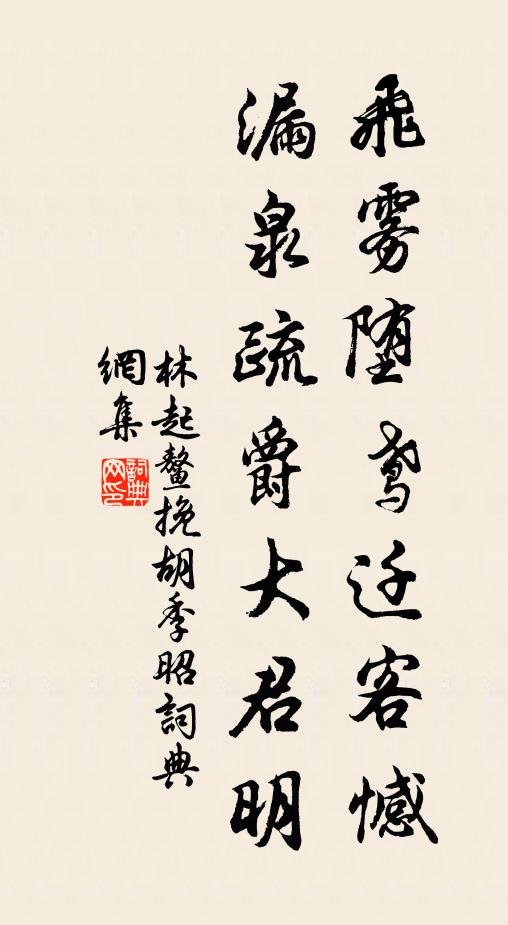 飛雾堕鸢迁客憾
漏泉疏爵大君明
林起鳌挽胡季昭詞典
網集
詞典
网印